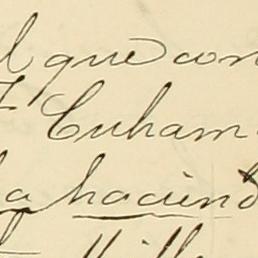 l que con
Cuham
la haciend